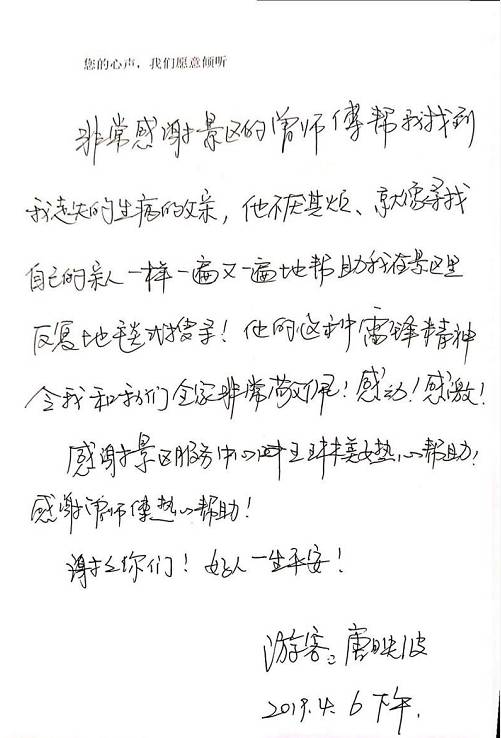 您的心声，我们愿意倾听
非常感谢景区的曾师傅帮我找到
我走失的生病的父亲，他不厌其烦、就像寻找
自己的亲人一样一遍又一遍地帮助我在景区里
反复地毯式搜寻！他的这种雷锋精神
令我和我们全家非常敬佩！感动！感激！
感谢景区服务中心叶玉珠美女热心帮助！
感谢曾师傅热心帮助！
谢谢你们！好人一生平安！
游客：唐映波
2019.4.6下午.